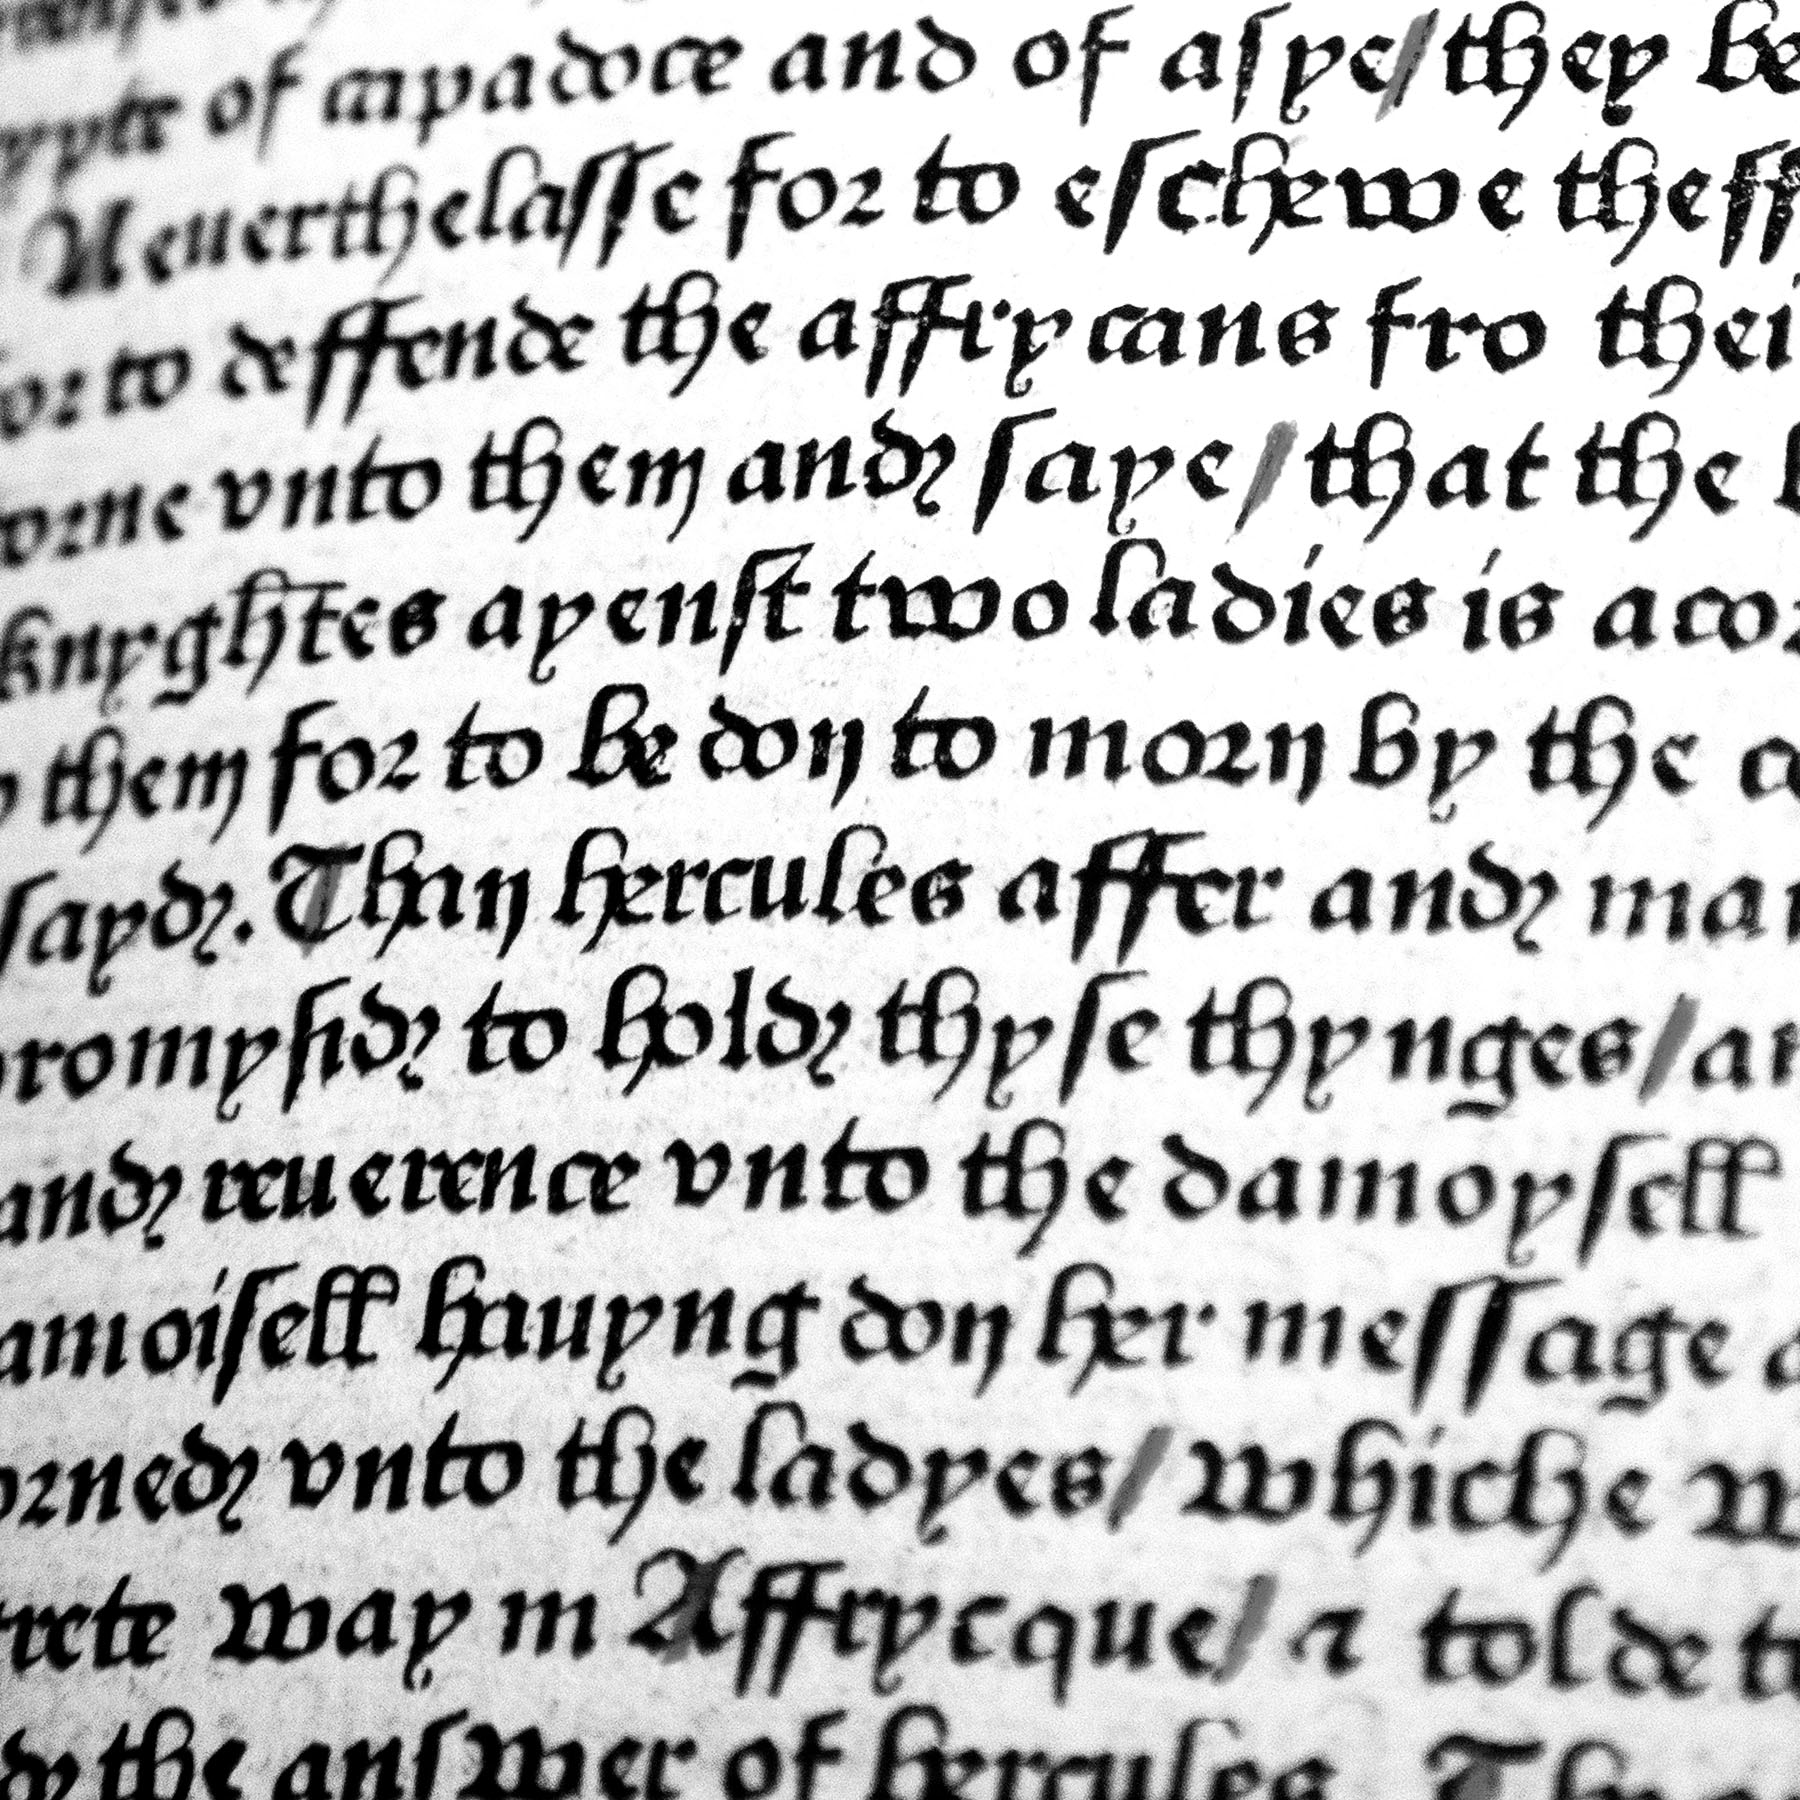 of capadoce and of aſye/ they be
Neuertheleſſe for to eſchewe theff
for to deffende the affrycans fro thei
orne vnto them and ſaye/ that the
knyghtes ayenſt two ladies is acor
them for to be don to morn by the
ſayd. Than hercules affer and mar
promyſid to hold thyſe thynges/ an
and reuerence vnto the damoyſell
amoiſell hauyng don her meſſage
orned vnto the ladyes/ whiche w
crete way in Affrycque/ ⁊ tolde
the anſwer of hercules